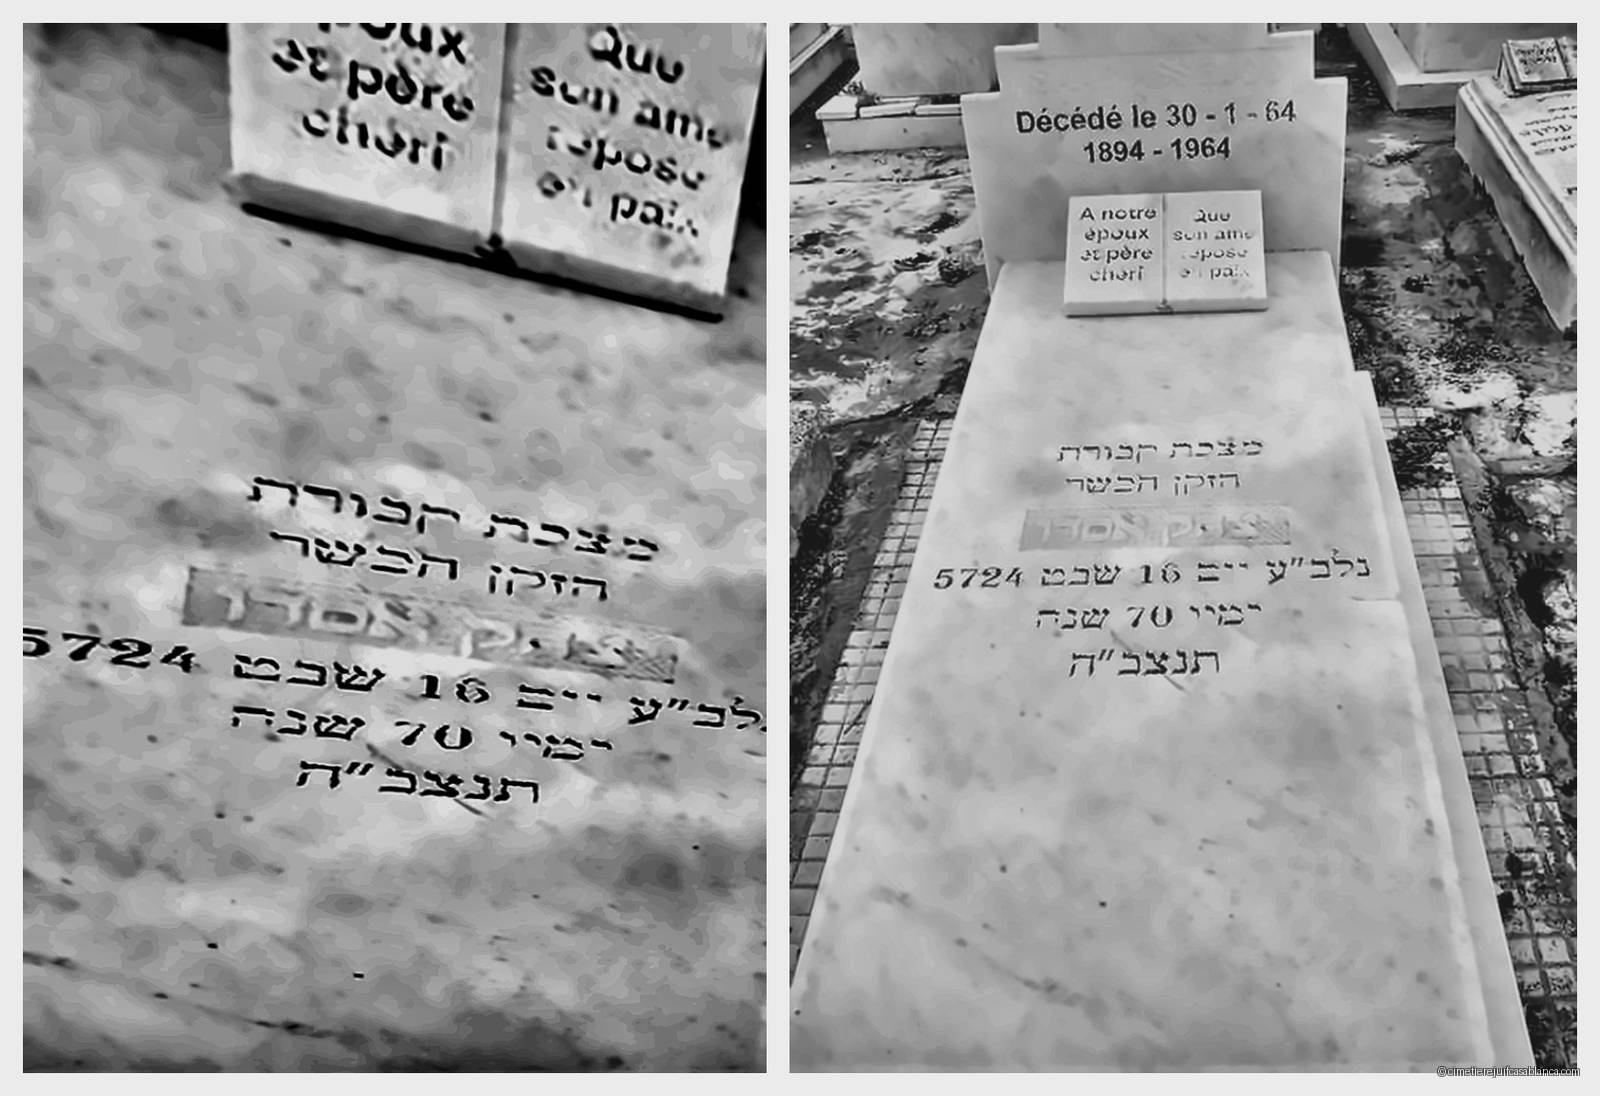 époux
et père
chéri
Que
son ame
repose
en paix
מצבת קבורת
הזקן הכשר
אסדו
לב״ע יים 16 שבט 5724
ימיי 70 שנה
תנצב״ה
Décédé le 30 - 1 - 64
1894 - 1964
A notre
époux
et père
chéri
Que
son ame
repose
en paix
מצבת קבורת
הזקן הכשר
נלב״ע יים 16 שבט 5724
ימיי 70 שנה
תנצב״ה
©cimetierejuifcasablanca.com